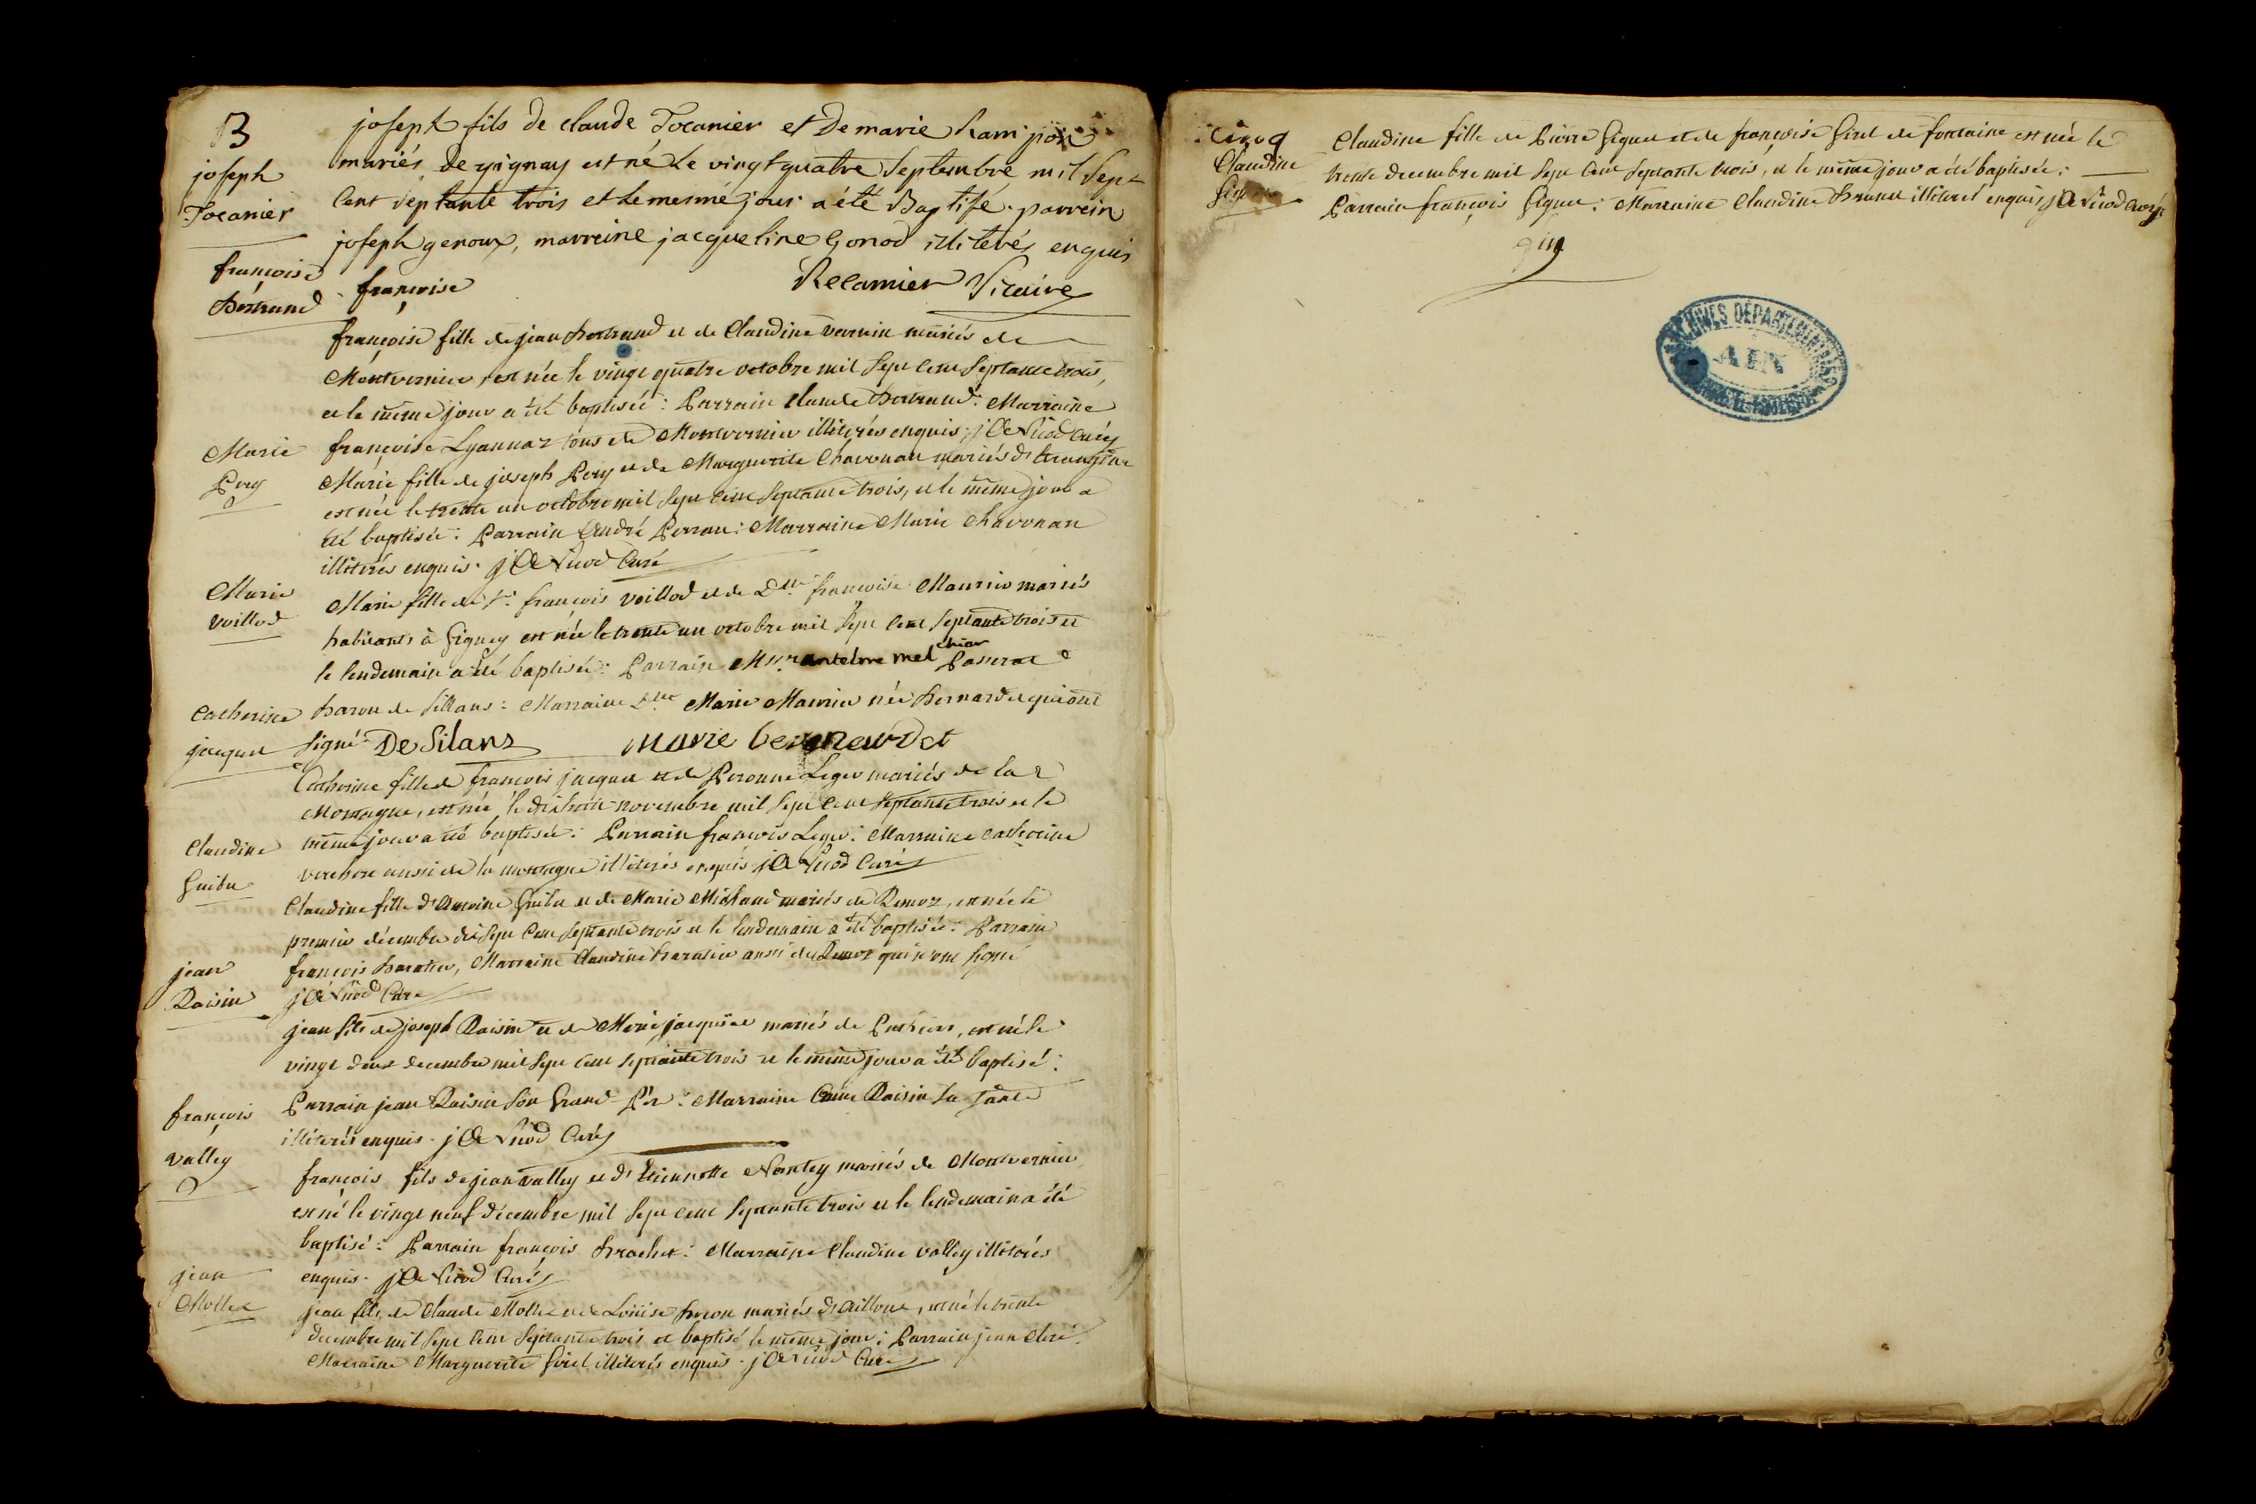 B
joseph
Jocanier
joseph fils de claude Jocanier et de marie Ram
mariés de gignay est né le vingt quatre Septembre mil Sept
Cent Septante trois et le mesme jour a été Baptisé. parrein
joseph genoux, marreine jacqueline Gonod illiterés enquis
Recamier Vicaire
françoise
Bertrand
françoise
françoise fille de jean Bertrand et de Claudine varrin mariés de
Montvernier, est née le vingt quatre octobre mil Sept Cent Septante trois,
et le même jour a été baptisée : Parrain Claude Bertrand : Marraine
françoise Lyannaz tous de Montvernier illiterés enquis. Curé
Marie
Perey
Marie fille de joseph Perey et de Marguerite Chavonau mariés
est née le trente un octobre mil Sept Cent Septante trois, et le même jour a
été baptisée : Parrain André Perrau : Marraine Marie Chavonau
illiterés enquis. Curé
Marie
Veillod
Marie fille de Sr. françois Veillod et de Dlle. françoise Maurier mariés
habitants à Gigney est née le trente un octobre mil Sept Cent Septante trois et
le lendemain a été baptisée : Parrain Mr. antelme melchior Passerat
baron de Sillans : Marraine Dlle Marie Maurier née Bernardet qui ont
Signé De Silans Marie bernardet
Catherine
jacquet
Catherine fille de françois jacquet et de Peronne Leger mariés de la
Montagne, est née le dix huit novembre mil Sept Cent Septante trois et le
même jour a été baptisée : Parrain françois Leger : Marraine Catherine
aussi de la montagne illiterés enquis Curé
Claudine
Guibu
Claudine fille d'Antoine Guibu et de Marie Michaud mariés de Remoz, est née le
premier décembre dix Sept Cent Septante trois et le lendemain a été baptisée : Parrain
françois Baratier, Marraine Claudine Baratier aussi de Remoz qui n'ont Signé
Curé
jean
Raisin
jean fils de joseph Raisin et de Marie jacquier mariés de est né le
vingt deux decembre mil Sept Cent Septante trois et le même jour a été baptisé :
Parrain jean Raisin Son Grand Père : Marraine Raisin Sa Tante
illiterés enquis. Curé
françois
valley
françois fils de jean valley et d'Etiennette Nantey mariés de Montvernier
est né le vingt neuf décembre mil Sept Cent Septante trois et le lendemain a été
baptisé : Parrain françois Brachet : Marraine Claudine valley illiterés
enquis. Curé
jean
Mollex
jean fils de Claude Mollex et de Louise Baron mariés d'Aillouz, est né le trente
decembre mil Sept Cent Septante trois et baptisé le même jour : Parrain jean
Marraine Marguerite Girel illiterés enquis. Curé
Cinq
Claudine
Claudine fille de Pierre Giguet et de françoise Girel de fontaine est née le
trente decembre mil Sept Cent Septante trois, et le même jour a été baptisée :
Parrain françois Giguet : Marraine Claudine Brunet illiterés enquis Curé
fin
ARCHIVES DÉPARTEMENTALES
AIN